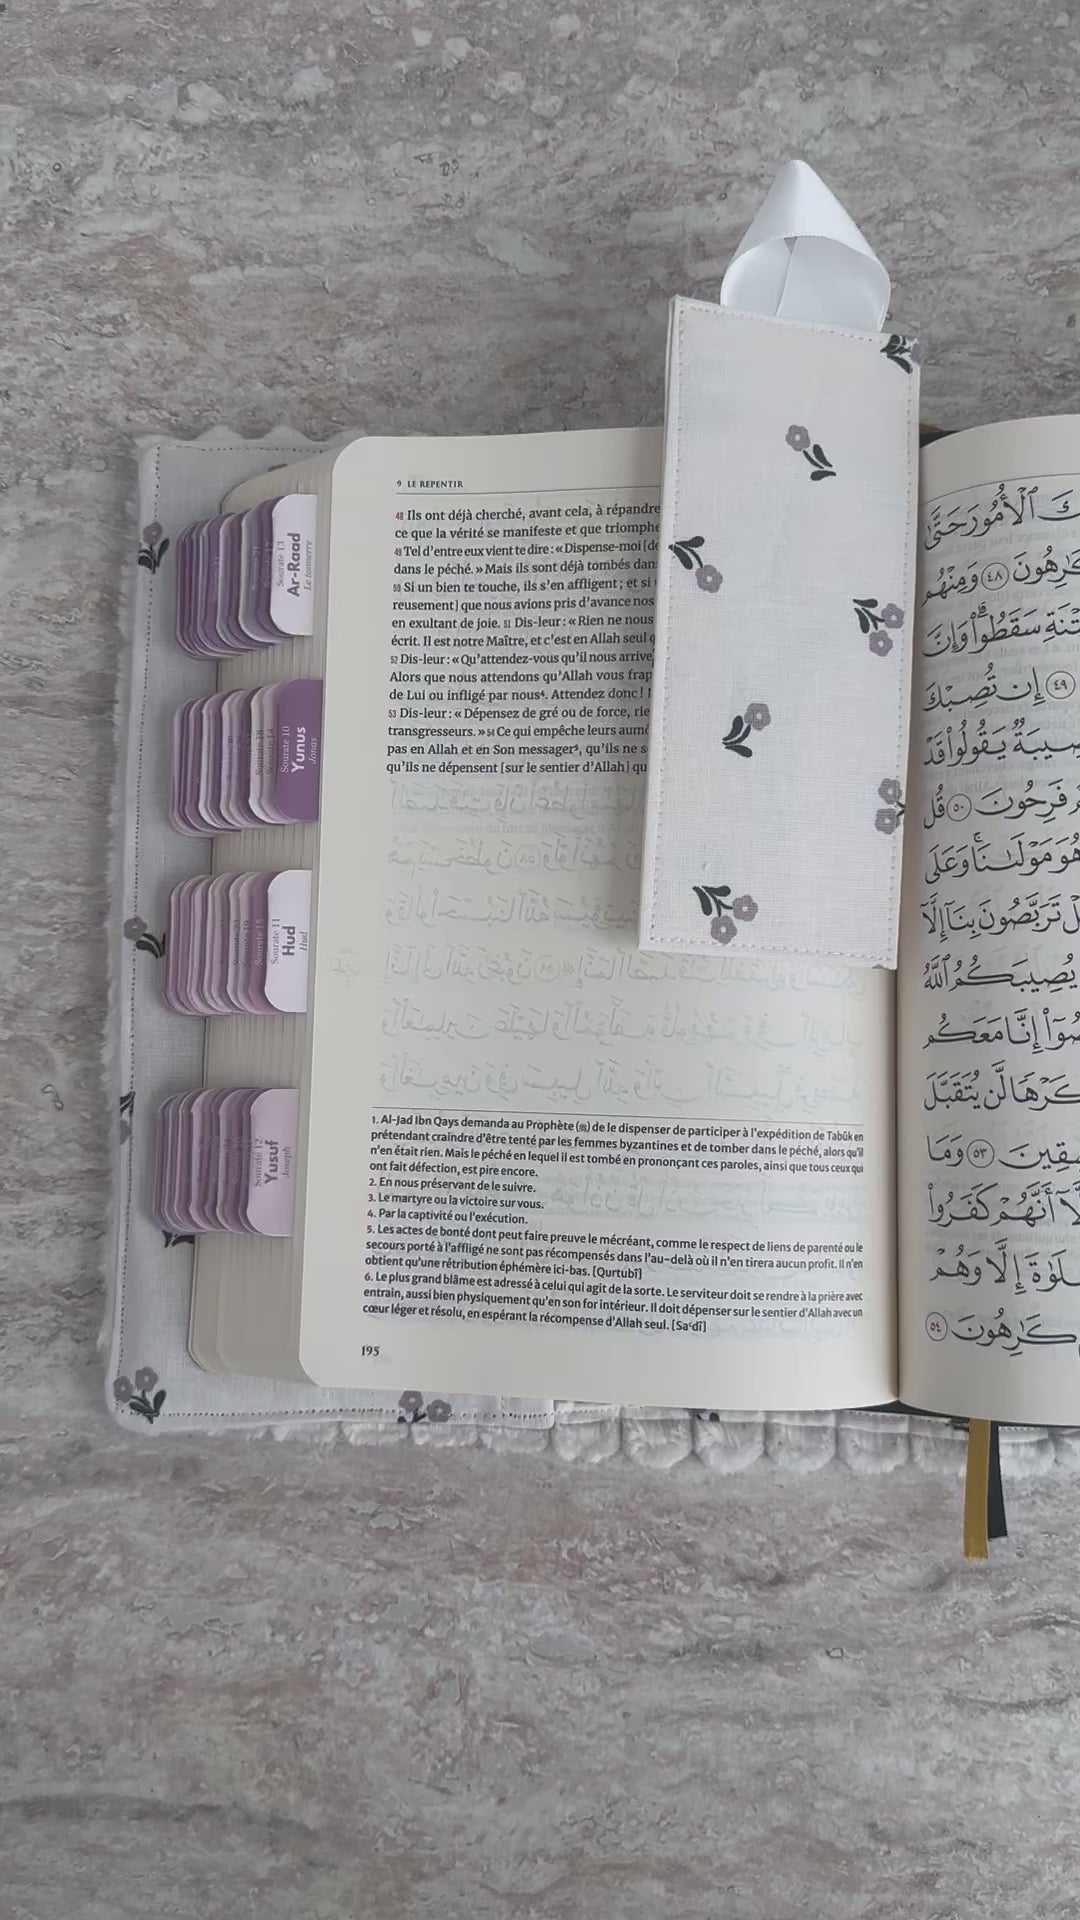 9 LE REPENTIR
48 Ils ont déjà cherché, avant cela, à répandre
ce que la vérité se manifeste et que triomphe
49 Tel d'entre eux vient te dire : « Dispense-moi [de
dans le péché. » Mais ils sont déjà tombés dans
50 Si un bien te touche, ils s'en affligent ; et si
reusement] que nous avions pris d'avance nos
en exultant de joie. 51 Dis-leur : « Rien ne nous
écrit. Il est notre Maître, et c'est en Allah seul
52 Dis-leur : « Qu'attendez-vous qu'il nous arrive,
Alors que nous attendons qu'Allah vous frap
de Lui ou infligé par nous⁴. Attendez donc !
53 Dis-leur : « Dépensez de gré ou de force, rie
transgresseurs. » 54 Ce qui empêche leurs aumô
pas en Allah et en Son messager⁵, qu'ils ne s
qu'ils ne dépensent [sur le sentier d'Allah] qu
1. Al-Jad Ibn Qays demanda au Prophète (ﷺ) de le dispenser de participer à l'expédition de Tabûk en
prétendant craindre d'être tenté par les femmes byzantines et de tomber dans le péché, alors qu'il
n'en était rien. Mais le péché en lequel il est tombé en prononçant ces paroles, ainsi que tous ceux qui
ont fait défection, est pire encore.
2. En nous préservant de le suivre.
3. Le martyre ou la victoire sur vous.
4. Par la captivité ou l'exécution.
5. Les actes de bonté dont peut faire preuve le mécréant, comme le respect de liens de parenté ou le
secours porté à l'affligé ne sont pas récompensés dans l'au-delà où il n'en tirera aucun profit. Il n'en
obtient qu'une rétribution éphémère ici-bas. [Qurtubî]
6. Le plus grand blâme est adressé à celui qui agit de la sorte. Le serviteur doit se rendre à la prière avec
entrain, aussi bien physiquement qu'en son for intérieur. Il doit dépenser sur le sentier d'Allah avec un
cœur léger et résolu, en espérant la récompense d'Allah seul. [Saʿdî]
195
Sourate 13
Ar-Raad
Le tonnerre
Sourate 10
Yunus
Jonas
Sourate 15
Sourate 11
Hud
Hud
Sourate 12
Yusuf
Joseph
ٱلْأُمُورَ حَتَّىٰ
كَٰرِهُونَ ٤٨ وَمِنْهُم
سَقَطُوا۟ ۗ وَإِنَّ
٤٩ إِن تُصِبْكَ
يَقُولُوا۟ قَدْ
فَرِحُونَ ٥٠ قُل
هُوَ مَوْلَىٰنَا ۚ وَعَلَى
تَرَبَّصُونَ بِنَآ إِلَّآ
يُصِيبَكُمُ ٱللَّهُ
إِنَّا مَعَكُم
كَرْهًا لَّن يُتَقَبَّلَ
٥٣ وَمَا
أَنَّهُمْ كَفَرُوا۟
إِلَّا وَهُمْ
كَٰرِهُونَ ٥٤